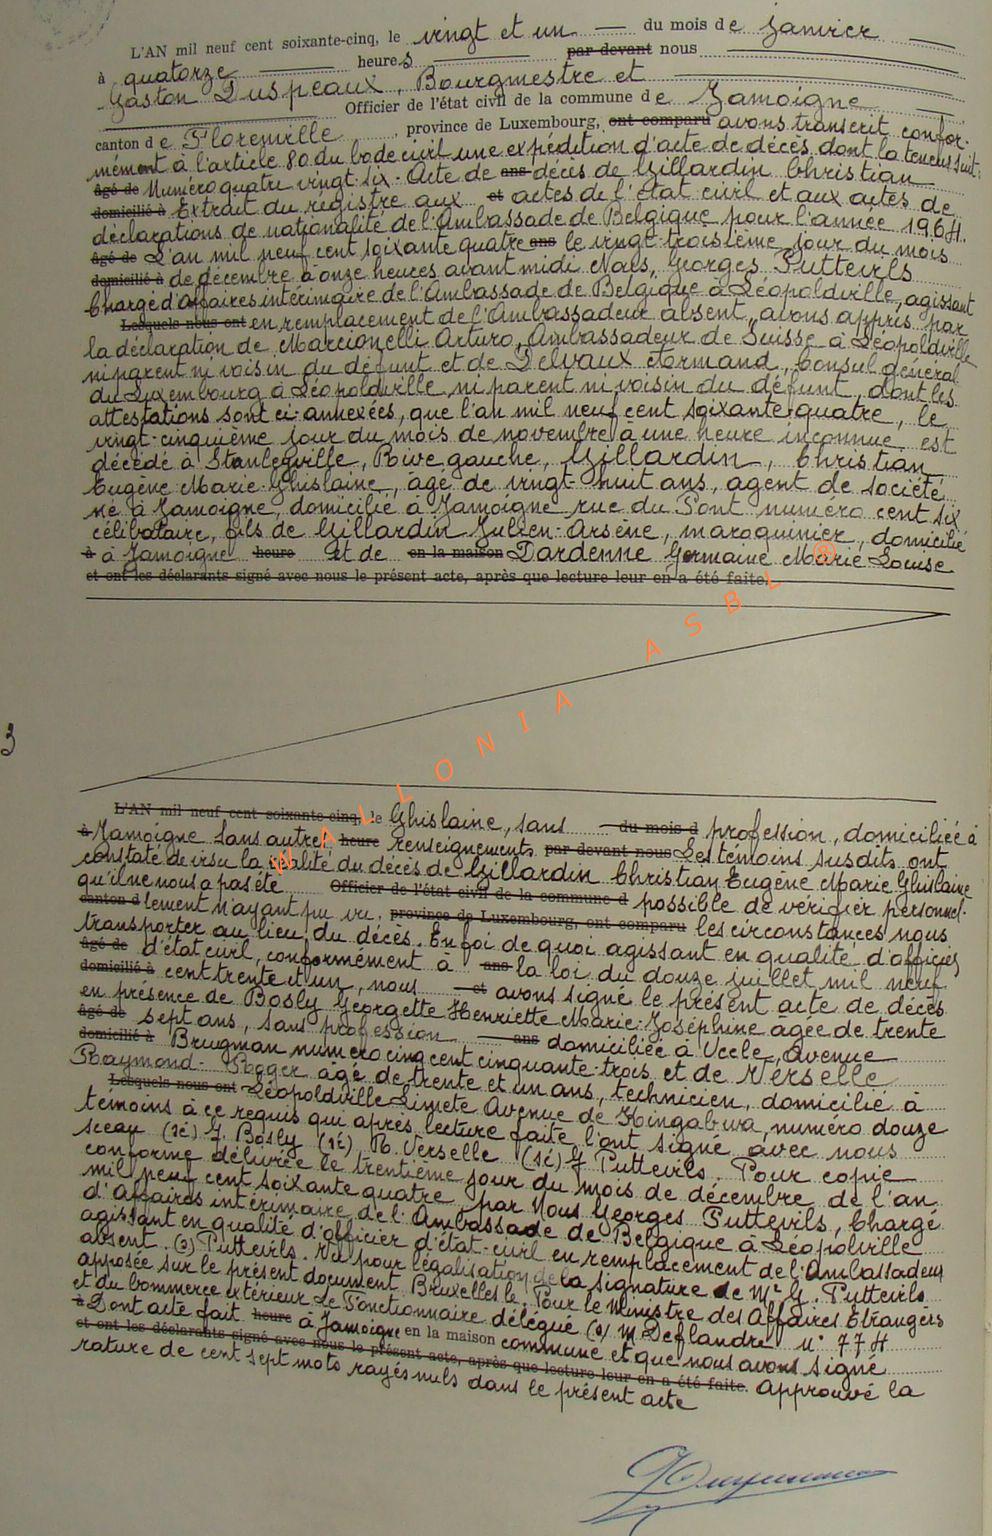 L'AN mil neuf cent soixante-cinq, le vingt et un du mois de janvier
à quatorze heures par devant nous
Gaston Duspeaux, Bourgmestre et
Officier de l'état civil de la commune de Jamoigne
canton de Florenville, province de Luxembourg, ont comparu avons transcrit confor-
mément à l'article 80 du Code civil une expédition d'acte de décès dont la teneur suit:
âgé de Numéro quatre vingt-six - Acte de ans décès de Gillardin Christian
domicilié à Extrait du régistre aux et actes de l'état civil et aux actes de
déclarations de nationalité de l'Ambassade de Belgique pour l'année 1964.
âgé de L'an mil neuf cent soixante quatre ans le vingt-troisième jour du mois
domicilié à de décembre à onze heures avant midi Nous, Georges Puttevils
Chargé d'Affaires intérimaire de l'Ambassade de Belgique à Léopoldville, agissant
Lesquels nous ont en remplacement de l'Ambassadeur absent, avons appris par
la déclaration de Marcionelli Arturo, Ambassadeur de Suisse à Léopoldville
ni parent ni voisin du défunt et de Delvaux Armand, Consul général
du Luxembourg à Léopoldville, ni parent ni voisin du défunt, dont les
attestations sont ci-annexées, que l'an mil neuf cent soixante-quatre, le
vingt-cinquième jour du mois de novembre à une heure inconnue est
décédé à Stanleyville, Rive gauche, Gillardin, Christian
Eugène-Marie-Ghislaine, âgé de vingt-huit ans, agent de société
né à Jamoigne, domicilié à Jamoigne rue du Pont numéro cent six
célibataire, fils de Gillardin Julien-Arsène, maroquinier, domicilié
à à Jamoigne heure et de en la maison Dardenne Germaine Marie Louise
et ont les déclarants signé avec nous le présent acte, après que lecture leur en a été faite.
WALLONIA ASBL ®
3
L'AN mil neuf cent soixante-cinq, le Ghislaine, sans du mois d profession, domiciliée à
à Jamoigne sans autre heure renseignements par devant nous Les témoins susdits ont
constaté de visu la réalité du décès de Gillardin Christian Eugène Marie Ghislaine
qu'il ne nous a pas été Officier de l'état civil de la commune d possible de vérifier personnel-
canton d lement n'ayant pu vu, province de Luxembourg, ont comparu les circonstances nous
transporter au lieu du décès. En foi de quoi agissant en qualité d'officier
âgé de d'état civil, conformément à ans la loi du douze juillet mil neuf
domicilié à cent trente et un, nous et avons signé le présent acte de décès
en présence de Bosly Georgette Henriette Marie-Joséphine agée de trente
âgé de sept ans, sans profession ans domiciliée à Uccle, Avenue
domicilié à Brugman numéro cinq cent cinquante-trois et de Verselle
Raymond-Roger âgé de trente et un ans, technicien, domicilié à
Lesquels nous ont Léopoldville Limete Avenue de Kingabwa, numéro douze
témoins à ce requis qui après lecture faite l'ont signé avec nous
sceau (sé) G. Bosly (sé) R. Verselle (sé) G Puttevils. Pour copie
conforme délivrée le trentième jour du mois de décembre de l'an
mil neuf cent soixante quatre par Nous Georges Puttevils, Chargé
d'Affaires intérimaire de l'Ambassade de Belgique à Léopolville
agissant en qualité d'officier d'état-civil en remplacement de l'Ambassadeur
absent. (s) Puttevils. Vu pour légalisation de la signature de Mr G. Puttevils
apposée sur le présent document Bruxelles le Pour le Ministre des Affaires Etrangères
et du Commerce extérieur Le Fonctionnaire délégué (s) M Deflandre N° 774
à Dont acte fait heure à Jamoigne en la maison commune et que nous avons signé
et ont les déclarants signé avec nous le présent acte, après que lecture leur en a été faite. Approuvé la
rature de cent sept mots rayés nuls dans le présent acte